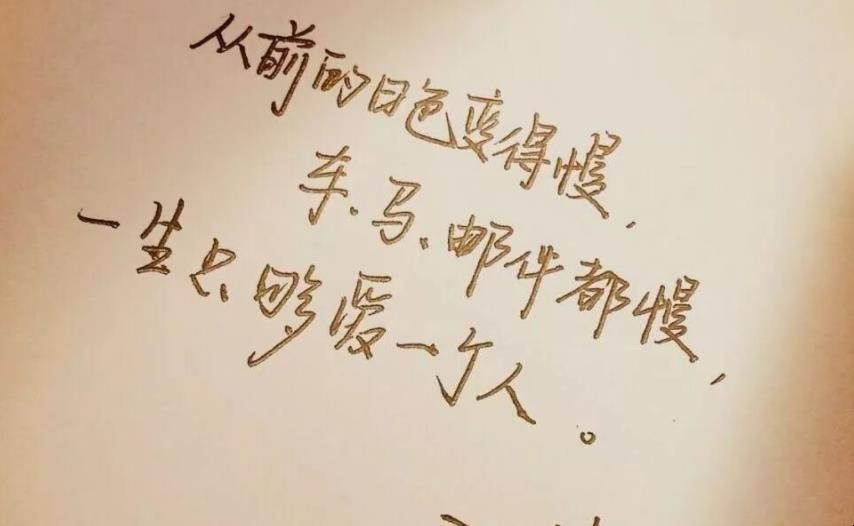 从前的日色变得慢，
车、马、邮件都慢，
一生只够爱一个人。